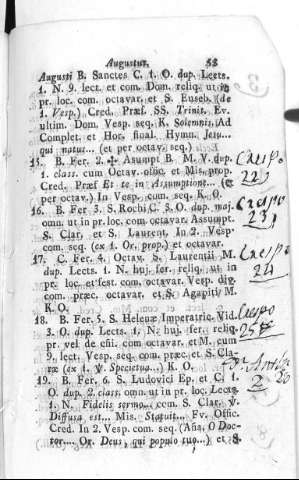 Augustus. 53
Augusti B. Sanctes C. 1. O. dup. Lects.
1. N. 9. lect. et com. Dom. reliq. ut in
pr. loc. com. octavar. et S. Euseb. (de
1. Vesp.) Cred. Præf. SS. Trinit. Ev.
ultim. Dom. Vesp. seq. K. Solemnis, Ad
Complet. et Hor. final. Hymn. Jesu...
qui natus... (et per octav. seq.)
15. B. Fer. 2. ✠ Asumpt B. M. V. dup.
1. class. cum Octav. offic. et Mis. prop.
Cred. Præf Et te in Assumptione... (et
per octav.) In Vesp. com. seq. K. O.
Crespo
22
16. B. Fer 3. S. Rochi C. 3. O. dup. maj.
omn. ut in pr. loc. com. octavar. Assumpt.
S. Clar. et S. Laurent. In 2. Vesp.
com. seq. (ex 1. Or. prop.) et octavar.
Crespo
23
17. C. Fer. 4. Octav. S. Laurentii M.
dup. Lects. 1. N. huj. fer. reliq. ut in
pr. loc. et fest. com. octavar. Vesp. dig.
com. præc. octavar. et S. Agapiti M.
K. O.
Crespo
24
18. B. Fer. 5. S. Helenæ Imperatric. Vid.
3. O. dup. Lects. 1. N. huj. fer. reliq.
pr. vel de efii. com. octavar. et M. cum
9. lect. Vesp. seq. com. præc. et S. Cla-
ræ (ex 1. ℣. Specietua...) K. O.
Crespo
25
19. B. Fer. 6. S. Ludovici Ep. et C. 1.
O. dup. 2. class. omn. ut in pr. loc. Lects.
1. N. Fidelis sermo... com. S. Clar. ℣.
Diffusa est... Mis. Statuit... Fv. Offic.
Cred. In 2. Vesp. com. seq. (Aña. O Doc-
tor.... Or. Deus, qui populo tuo...) et S.
2